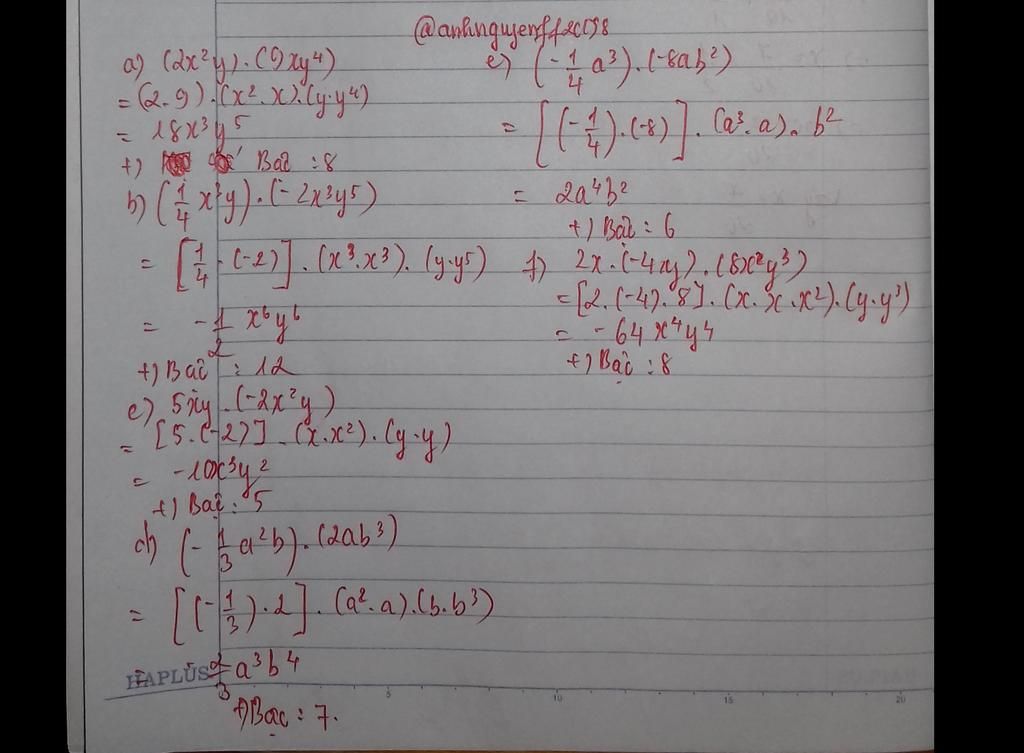 @anhnguyenffxc598
a) (2x²y).(9xy⁴)
= (2.9).(x².x).(y.y⁴)
= 18x³y⁵
+) Bậc : 8
b) (1/4 x³y).(-2x³y⁵)
= [1/4.(-2)].(x³.x³).(y.y⁵)
= -1/2 x⁶y⁶
+) Bậc : 12
c) 5xy.(-2x²y)
= [5.(-2)].(x.x²).(y.y)
= -10x³y²
+) Bậc : 5
d) (-1/3 a²b).(2ab³)
= [(-1/3).2].(a².a).(b.b³)
= -2/3 a³b⁴
+) Bậc : 7.
e) (-1/4 a³).(-8ab²)
= [(-1/4).(-8)].(a³.a).b²
= 2a⁴b²
+) Bậc : 6
f) 2x.(-4xy).(8x²y³)
= [2.(-4).8].(x.x.x²).(y.y³)
= -64x⁴y⁴
+) Bậc : 8
HAPLUS
5 10 15 20